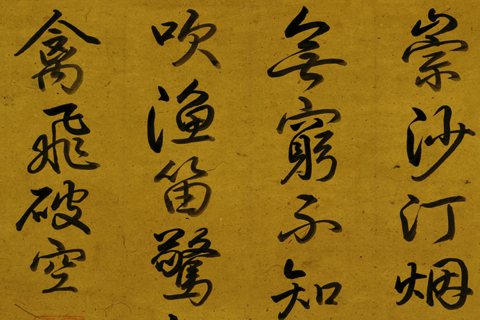 崇沙汀烟
無窮不知
吹漁笛驚
禽飛破空